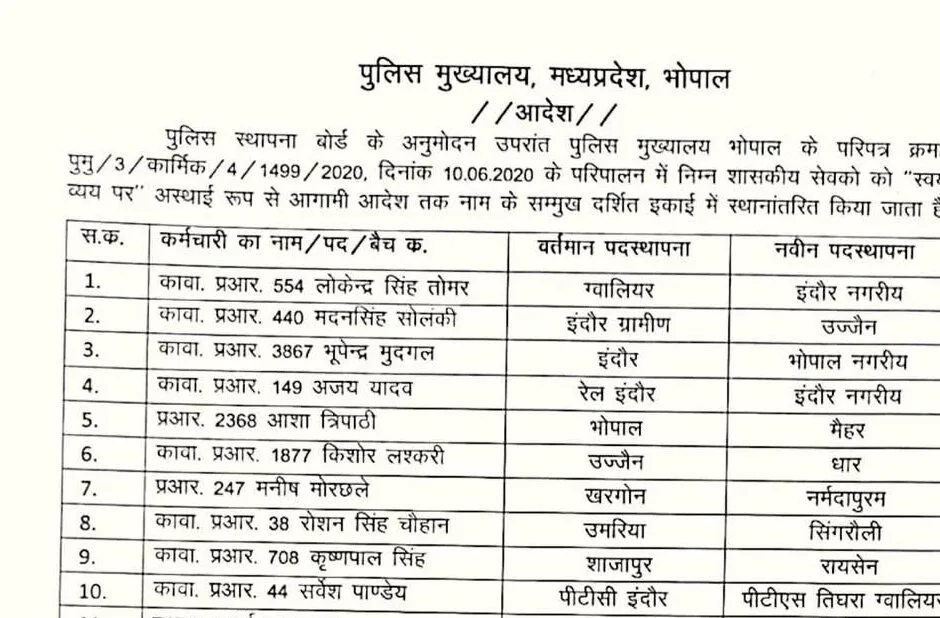 पुलिस मुख्यालय, मध्यप्रदेश, भोपाल
//आदेश//
पुलिस स्थापना बोर्ड के अनुमोदन उपरांत पुलिस मुख्यालय भोपाल के परिपत्र क्रमा
पुमु/3/कार्मिक/4/1499/2020, दिनांक 10.06.2020 के परिपालन में निम्न शासकीय सेवको को "स्वय
व्यय पर" अस्थाई रूप से आगामी आदेश तक नाम के सम्मुख दर्शित इकाई में स्थानांतरित किया जाता है
स.क. कर्मचारी का नाम/पद/बैच क. वर्तमान पदस्थापना नवीन पदस्थापना
1. कावा. प्रआर. 554 लोकेन्द्र सिंह तोमर ग्वालियर इंदौर नगरीय
2. कावा. प्रआर. 440 मदनसिंह सोलंकी इंदौर ग्रामीण उज्जैन
3. कावा. प्रआर. 3867 भूपेन्द्र मुदगल इंदौर भोपाल नगरीय
4. कावा. प्रआर. 149 अजय यादव रेल इंदौर इंदौर नगरीय
5. प्रआर. 2368 आशा त्रिपाठी भोपाल मैहर
6. कावा. प्रआर. 1877 किशोर लश्करी उज्जैन धार
7. प्रआर. 247 मनीष मोरछले खरगोन नर्मदापुरम
8. कावा. प्रआर. 38 रोशन सिंह चौहान उमरिया सिंगरौली
9. कावा. प्रआर. 708 कृष्णपाल सिंह शाजापुर रायसेन
10. कावा. प्रआर. 44 सर्वेश पाण्डेय पीटीसी इंदौर पीटीएस तिघरा ग्वालियर